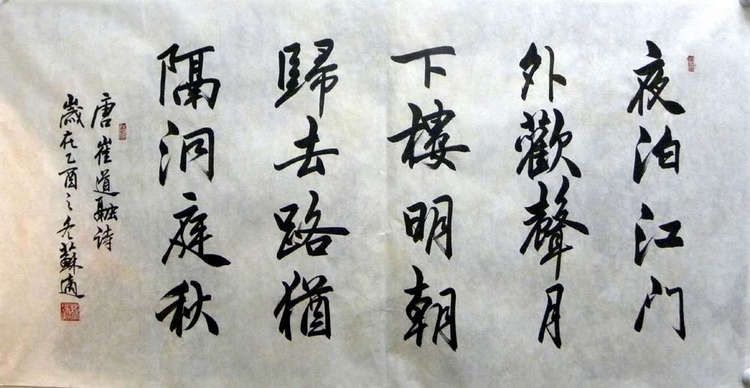 夜泊江门
外歡聲月
下樓明朝
歸去路猶
隔洞庭秋
唐崔道融诗
歲在乙酉之冬蘇適